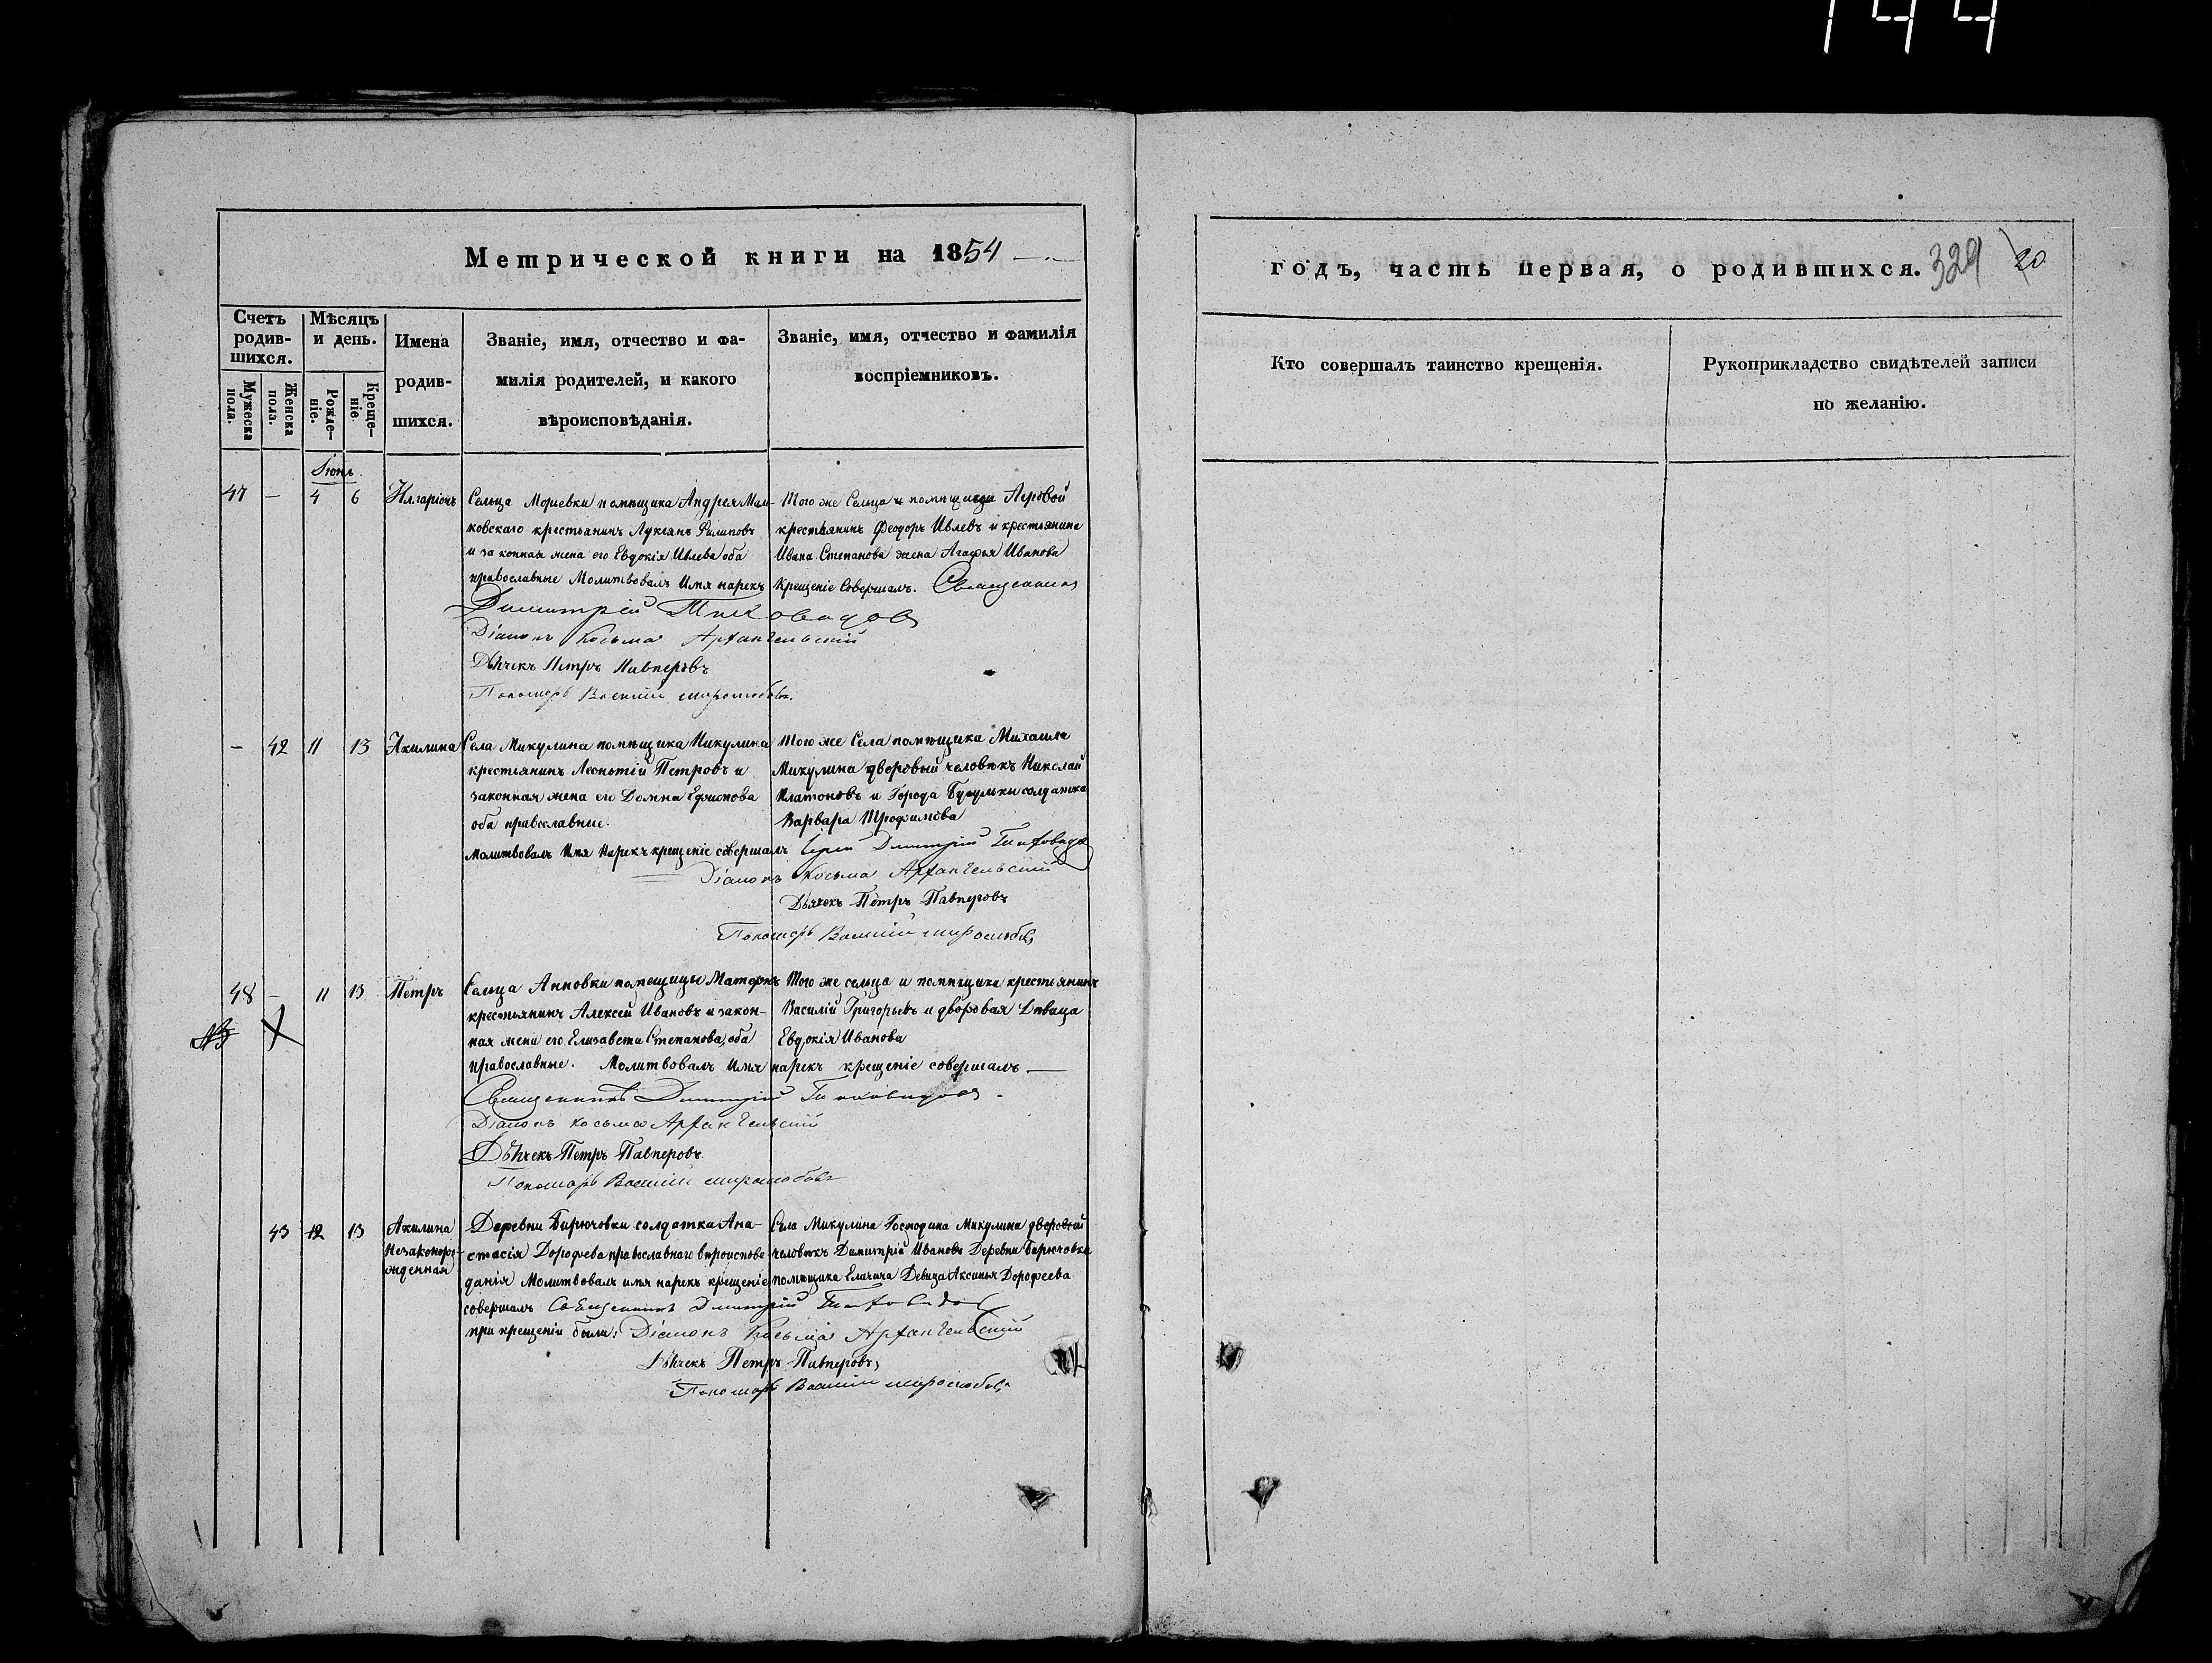 144
Метрической книги на 1854
годъ, часть первая, о родившихся. 329 20
Счетъ родившихся.
Мѣсяцъ и день.
Имена родившихся.
Званіе, имя, отчество и фамилія родителей, и какого вѣроисповѣданія.
Званіе, имя, отчество и фамилія воспріемниковъ.
Мужеска пола.
Женска пола.
Рожденіе.
Крещеніе
Кто совершалъ таинство крещенія.
Рукоприкладство свидѣтелей записи по желанію.
Іюнь
47 — 4 6 Илларіонъ
Сельца помѣщика Андрея
ковскаго крестьянинъ Лукьянъ Филиповъ
и законная жена его Евдокія Ивлева оба
православные Молитвовалъ Имя нарекъ Крещеніе Совершалъ. Священникъ
Того же Сельца и
крестьянинъ Феодоръ Ивлевъ и крестьянина
Ивана Степанова жена Агафья Иванова
Димитрій Тиховидовъ
Діаконъ Косьма Архангельскій
Дьячекъ Петръ Павперовъ
Пономарь Василій Миролюбовъ.
— 42 11 13 Акилина
Села Микулина помѣщика Микулина
крестьянинъ Леонтій Петровъ и
законная жена его Домна
оба православные.
Того же Села помѣщика Михаила
Микулина дворовый человѣкъ Николай
Платоновъ и Города солдатка
Варвара Трофимова
Молитвовалъ Имя Нарекъ крещеніе совершалъ Іерей Димитрій Тиховидовъ
Діаконъ Косьма Архангельскій
Дьячекъ Петръ Павперовъ
Пономарь Василій Миролюбовъ
48 — 11 13 Петръ
Сельца Анновки помещицы
крестьянинъ Алексей Ивановъ и закон-
ная жена его Елизавета Степанова, оба
православные. Молитвовалъ Имя нарекъ крещеніе совершалъ —
Того же сельца и помѣщика крестьянинъ
Василій Григорьевъ и дворовая Дѣвица
Евдокія Иванова
Священникъ Димитрій Тиховидовъ
Діаконъ Косьма Архангельскій
Дьячекъ Петръ Павперовъ
Пономарь Василій Миролюбовъ
43 12 13 Акилина Незаконорожденная
Деревни Бирючовки солдатка Ана-
стасія Дорофеева православнаго вѣроиспове
данія Молитвовалъ имя нарекъ крещеніе
совершалъ Священникъ Димитрій Тиховидовъ
Села Микулина Господина Микулина дворовый
человѣкъ Димитрій Ивановъ Деревни Бирючовки
помѣщика Девица Аксинья Дорофеева
при крещеніи были: Діаконъ Косьма Архангельскій
Дьячекъ Петръ Павперовъ
Пономарь Василій Миролюбовъ